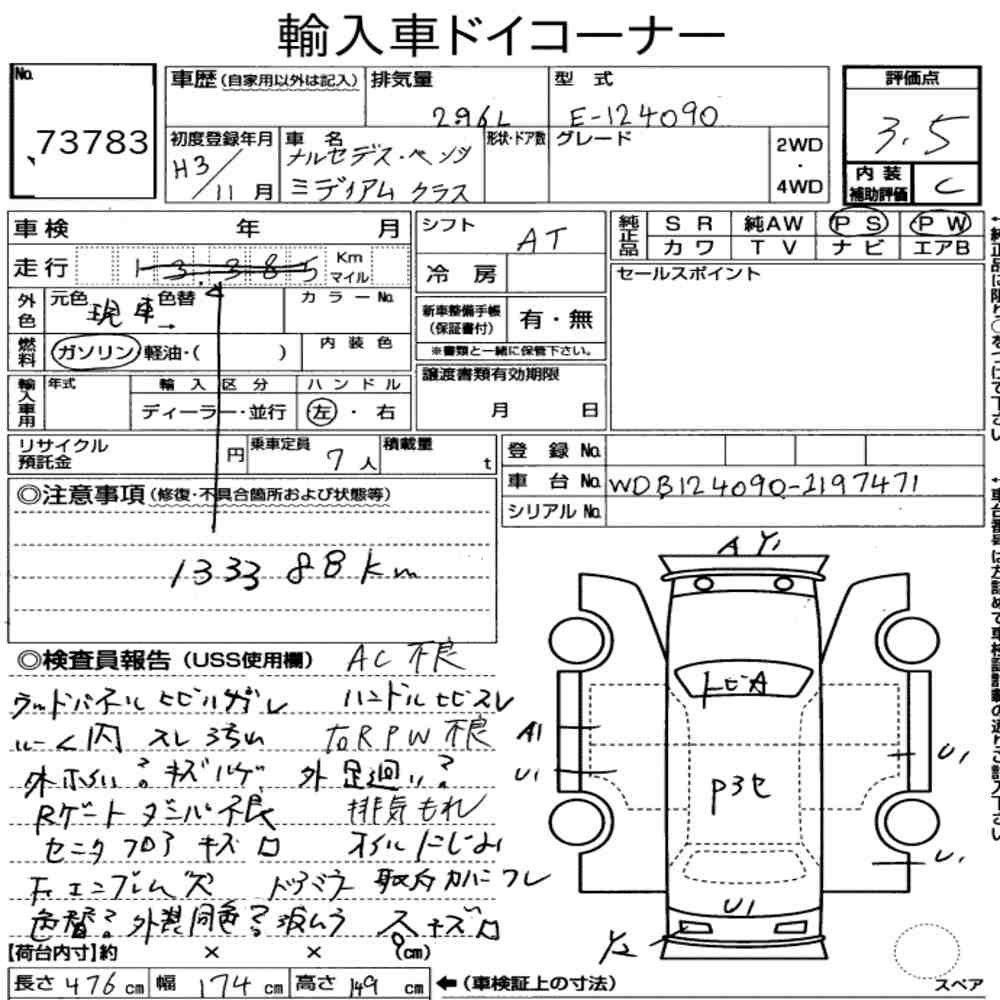 輸入車ドイコーナー
No. 73783
車歴 (自家用以外は記入)
排気量 2.96L
型式 E-124090
評価点 3.5
内装補助評価 C
初度登録年月 H3/11月
車名 メルセデス・ベンツ
ミディアム クラス
形状・ドア数
グレード
2WD・4WD
車検 年 月
走行 13.385 Km マイル
外色 元色 現車→ 色替
カラーNo.
燃料 ガソリン・軽油・( )
内装色
輸入車用 年式
輸入区分 ディーラー・並行
ハンドル 左・右
シフト AT
冷房
新車整備手帳(保証書付) 有・無
※書類と一緒に保管下さい。
譲渡書類有効期限 月 日
純正品 SR 純AW PS PW
カワ TV ナビ エアB
セールスポイント
リサイクル預託金 円
乗車定員 7人
積載量 t
登録No.
車台No. WDB124090-1197471
シリアルNo.
◎注意事項 (修復・不具合箇所および状態等)
133388km
◎検査員報告 (USS使用欄) AC不良
ウッドパネルヒビハガレ ハンドルヒビスレ
スレ
右RPW不良
キズハゲ 外足廻り?
Rゲートダンパ不良 排気もれ
フロアキズ オイルにじみ
エンブレム ドアミラー取付カバー
色替? 外装同色?
キズ
【荷台内寸】約 × × (cm)
長さ 476 cm 幅 174 cm 高さ 149 cm
←(車検証上の寸法)
A Y1
トビA
A1
U1
P3セ
U1
U1
U1
Y2
スペア